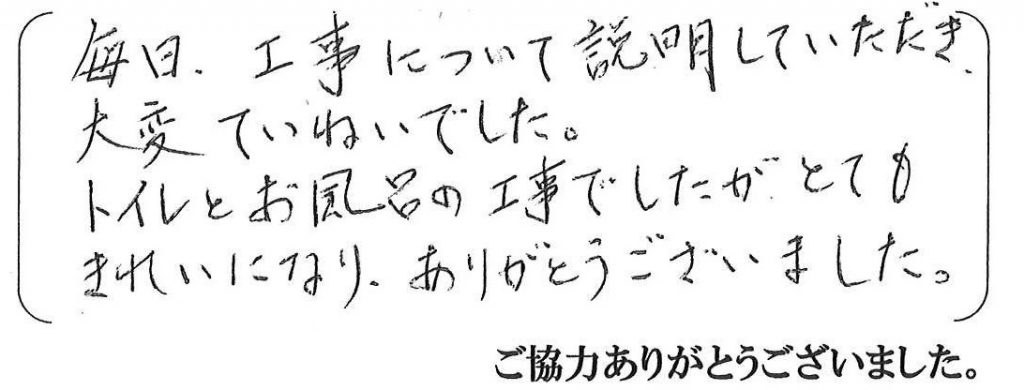 毎日、工事について説明していただき、
大変ていねいでした。
トイレとお風呂の工事でしたがとても
きれいになり、ありがとうございました。
ご協力ありがとうございました。